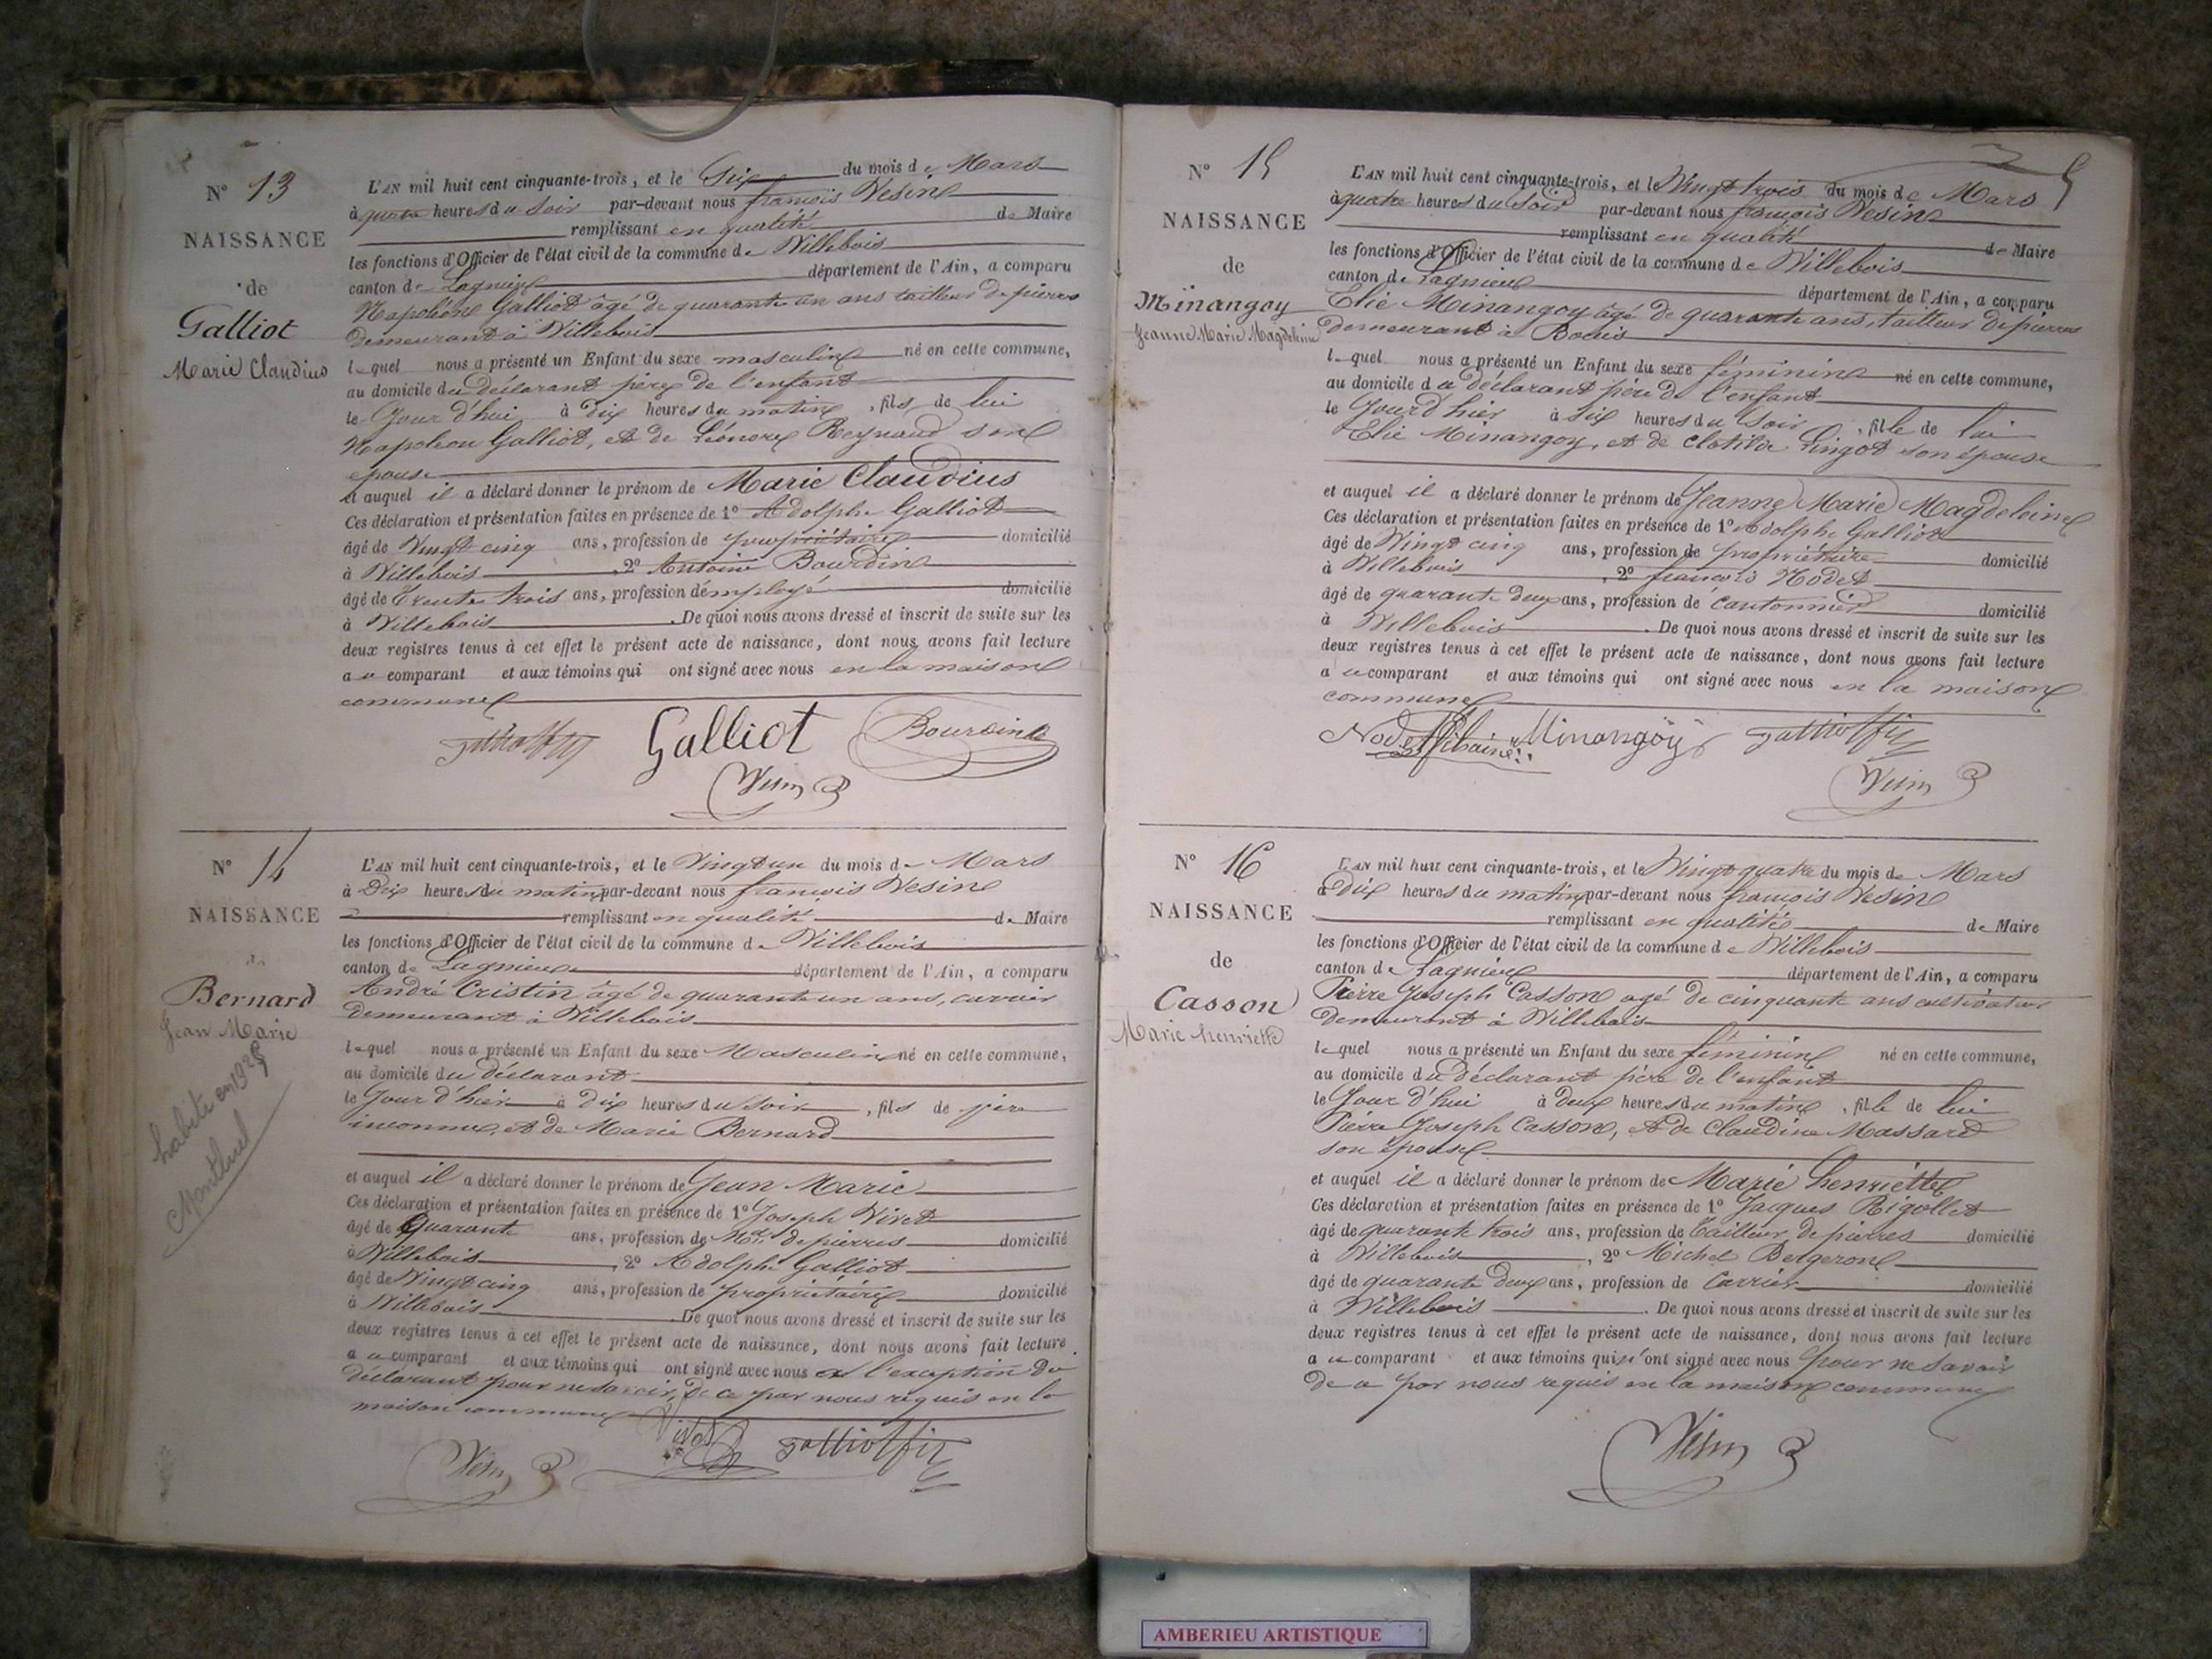 N° 13
NAISSANCE
de
Galliot
Marie Claudius
L'AN mil huit cent cinquante-trois, et le Six du mois de Mars
à quatre heures du Soir par-devant nous françois Vesin
remplissant en qualité de Maire
les fonctions d'Officier de l'état civil de la commune de Villebois
canton de Lagnieu département de l'Ain, a comparu
Napoléon Galliot âgé de quarante un ans tailleur de pierres
demeurant à Villebois
lequel nous a présenté un Enfant du sexe masculin né en cette commune,
au domicile du déclarant père de l'enfant
le Jour d'hui à dix heures du matin, fils de lui
Napoléon Galliot, et de Léonore Reynaud son
épouse
et auquel il a déclaré donner le prénom de Marie Claudius
Ces déclaration et présentation faites en présence de 1° Adolphe Galliot
âgé de Vingt cinq ans, profession de propriétaire domicilié
à Villebois, 2° Antoine Bourdin
âgé de Trente trois ans, profession d'employé domicilié
à Villebois. De quoi nous avons dressé et inscrit de suite sur les
deux registres tenus à cet effet le présent acte de naissance, dont nous avons fait lecture
au comparant et aux témoins qui ont signé avec nous en la maison
commune
Galliot fils Galliot Bourdin
Vesin
N° 14
NAISSANCE
de
Bernard
Jean Marie
habite en 1925
Montluel
L'AN mil huit cent cinquante-trois, et le Vingt un du mois de Mars
à Dix heures du matin par-devant nous françois Vesin
remplissant en qualité de Maire
les fonctions d'Officier de l'état civil de la commune de Villebois
canton de Lagnieu département de l'Ain, a comparu
André Cristin âgé de quarante un ans, carrier
demeurant à Villebois
lequel nous a présenté un Enfant du sexe Masculin né en cette commune,
au domicile du déclarant
le Jour d'hier à dix heures du soir, fils de père
inconnu, et de Marie Bernard
et auquel il a déclaré donner le prénom de Jean Marie
Ces déclaration et présentation faites en présence de 1° Joseph Vivet
âgé de Quarante ans, profession de Md de pierres domicilié
à Villebois, 2° Adolphe Galliot
âgé de Vingt cinq ans, profession de propriétaire domicilié
à Villebois. De quoi nous avons dressé et inscrit de suite sur les
deux registres tenus à cet effet le présent acte de naissance, dont nous avons fait lecture
au comparant et aux témoins qui ont signé avec nous à l'exception du
déclarant pour ne savoir, de ce par nous requis en la
maison commune
Vesin Vivet Galliot fils
N° 15
NAISSANCE
de
Minangoy
Jeanne Marie Magdeleine
L'AN mil huit cent cinquante-trois, et le Vingt trois du mois de Mars
à quatre heures du Soir par-devant nous françois Vesin
remplissant en qualité de Maire
les fonctions d'Officier de l'état civil de la commune de Villebois
canton de Lagnieu département de l'Ain, a comparu
Elie Minangoy âgé de quarante ans, tailleur de pierres
demeurant à Bouis
lequel nous a présenté un Enfant du sexe féminin né en cette commune,
au domicile du déclarant père de l'enfant
le Jour d'hier à six heures du Soir, fille de lui
Elie Minangoy, et de Clotilde Lingot son épouse
et auquel il a déclaré donner le prénom de Jeanne Marie Magdeleine
Ces déclaration et présentation faites en présence de 1° Adolphe Galliot
âgé de Vingt cinq ans, profession de propriétaire domicilié
à Villebois, 2° françois Nodet
âgé de quarante deux ans, profession de cantonnier domicilié
à Villebois. De quoi nous avons dressé et inscrit de suite sur les
deux registres tenus à cet effet le présent acte de naissance, dont nous avons fait lecture
au comparant et aux témoins qui ont signé avec nous en la maison
commune
Nodet Minangoÿ Galliot fils
Vesin
N° 16
NAISSANCE
de
Casson
Marie henriette
L'AN mil huit cent cinquante-trois, et le Vingt quatre du mois de Mars
à dix heures du matin par-devant nous françois Vesin
remplissant en qualité de Maire
les fonctions d'Officier de l'état civil de la commune de Villebois
canton de Lagnieu département de l'Ain, a comparu
Pierre Joseph Casson agé de cinquante ans cultivateur
demeurant à Villebois
lequel nous a présenté un Enfant du sexe féminin né en cette commune,
au domicile du déclarant père de l'enfant
le Jour d'hui à deux heures du matin, fille de lui
Pierre Joseph Casson, et de Claudine Massard
son épouse
et auquel il a déclaré donner le prénom de Marie henriette
Ces déclaration et présentation faites en présence de 1° Jacques Rigollet
âgé de quarante trois ans, profession de Tailleur de pierres domicilié
à Villebois, 2° Michel Bergeron
âgé de quarante deux ans, profession de Carrier domicilié
à Villebois. De quoi nous avons dressé et inscrit de suite sur les
deux registres tenus à cet effet le présent acte de naissance, dont nous avons fait lecture
au comparant et aux témoins qui n'ont signé avec nous pour ne savoir
de ce par nous requis en la maison commune
Vesin
AMBERIEU ARTISTIQUE